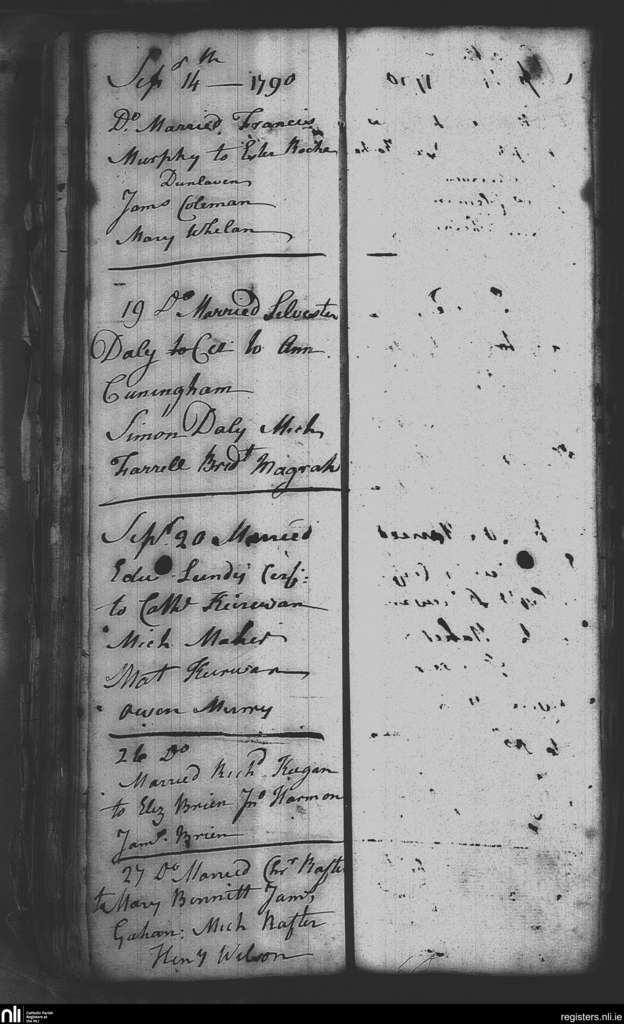 Sepr 14th — 1790
Do Married Francis
Murphy to Ester Roche
Dunlaven
Jams Coleman
Mary Whelan
19 Do Married Silvester
Daly to Cer: to Ann
Cuningham
Simon Daly Mich
Farrell Bridt Magrah
Sepr 20 Married
Edw Lundy Cerf:
to Cathe Keirwan
Mich Maher
Mat Kurwan
Owen Murry
26 Do
Married Richd Keegan
to Eliz Brien Jno Harmon
Jams Brien
27 Do Married Chrr Rafter
to Mary Bennitt Jams
Gahan: Mich Rafter
Heny Wilson
nli
Catholic Parish
Registers at
the NLI
registers.nli.ie